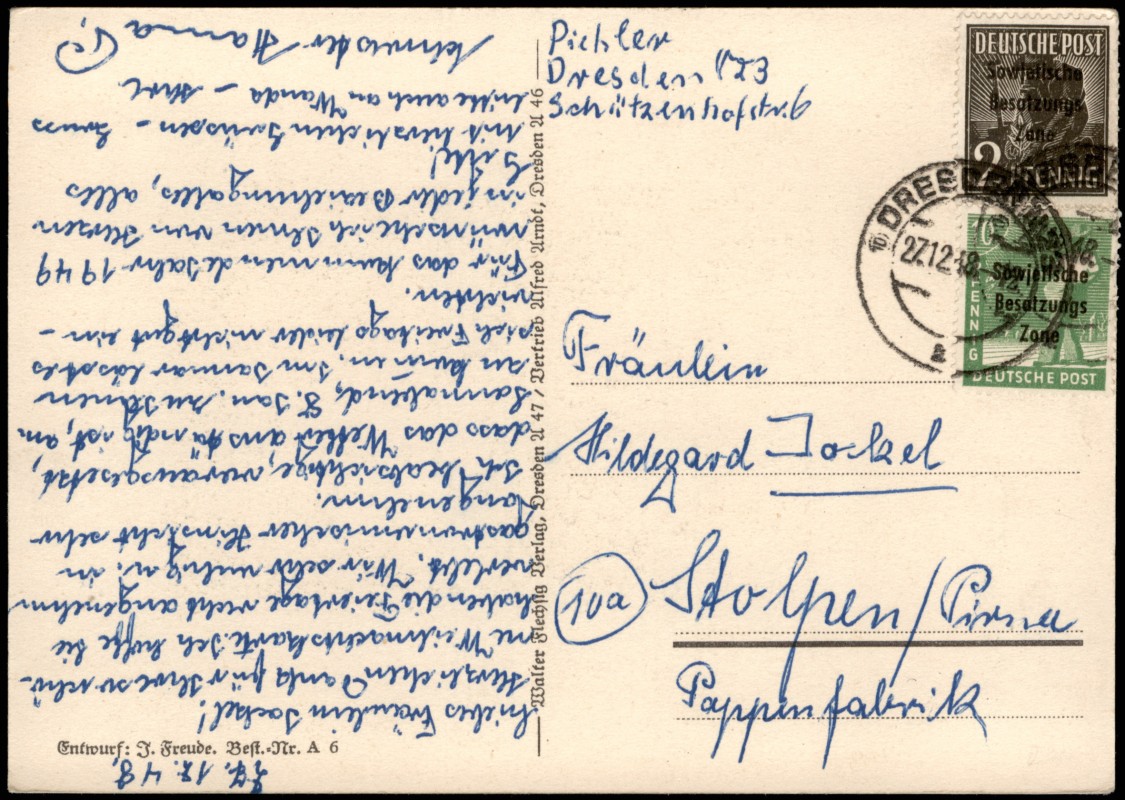 Pichler
Dresden A23
Schützenhofstr. 6
DEUTSCHE POST
Sowjetische
Besatzungs
Zone
2 PFENNIG
DRESDEN
27.12.48
10 PFENNIG
Sowjetische
Besatzungs
Zone
DEUTSCHE POST
Fräulein
Hildegard Jockel
10a
Stolpen/Pirna
Pappenfabrik
Walter Flechsig Verlag, Dresden A 47 / Vertrieb Alfred Arndt, Dresden A 46
Entwurf: J. Freude. Best.-Nr. A 6
27.12.48
Liebes Fräulein Jockel!
Herzlichen Dank für Ihre so schö-
ne Weihnachtskarte. Ich hoffe Sie
haben die Feiertage recht angenehm
verlebt. Wir sehr ruhig u. in
gastronomischer Hinsicht sehr
angenehm.
Ich beabsichtige, vorausgesetzt,
dass das Wetter anständig ist, am
Sonnabend, 8. Jan. zu Ihnen
zu kommen. Im Januar lässt es
sich Freitags leider nicht gut ein-
richten.
Für das kommende Jahr 1949
wünsche ich Ihnen von Herzen
in jeder Beziehung alles, alles
Gute!
Mit herzlichen Grüssen - Gruss
bitte auch an Wanda - Ihre
Schwester Hanna P.